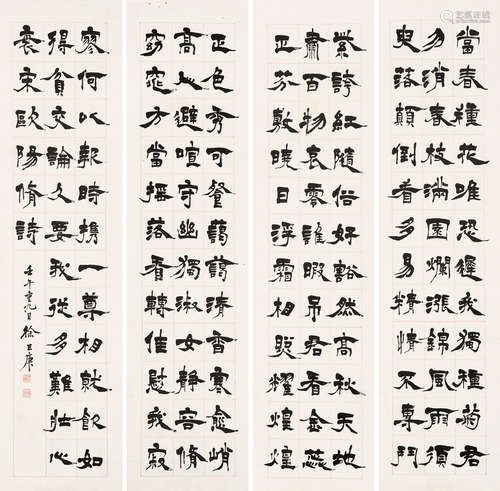 當春種花唯恐遲我獨種菊君
勿消春枝滿園爛漲錦風雨須
臾落顛倒看多易精情不專鬥
紫誇紅隨俗好豁然高秋天地
肅百物哀零誰暇吊君看金蕊
正芬敷曉日浮霜相照耀煌煌
正色秀可餐藹藹清香寒愈峭
高人避喧守幽獨淑女靜容脩
窈窕方當搖落看轉佳慰我寂
寥何以報時攜一尊相就飲如
得貧交論久要我從多難壯心
衰宋歐陽脩詩
壬午重九日徐三庚